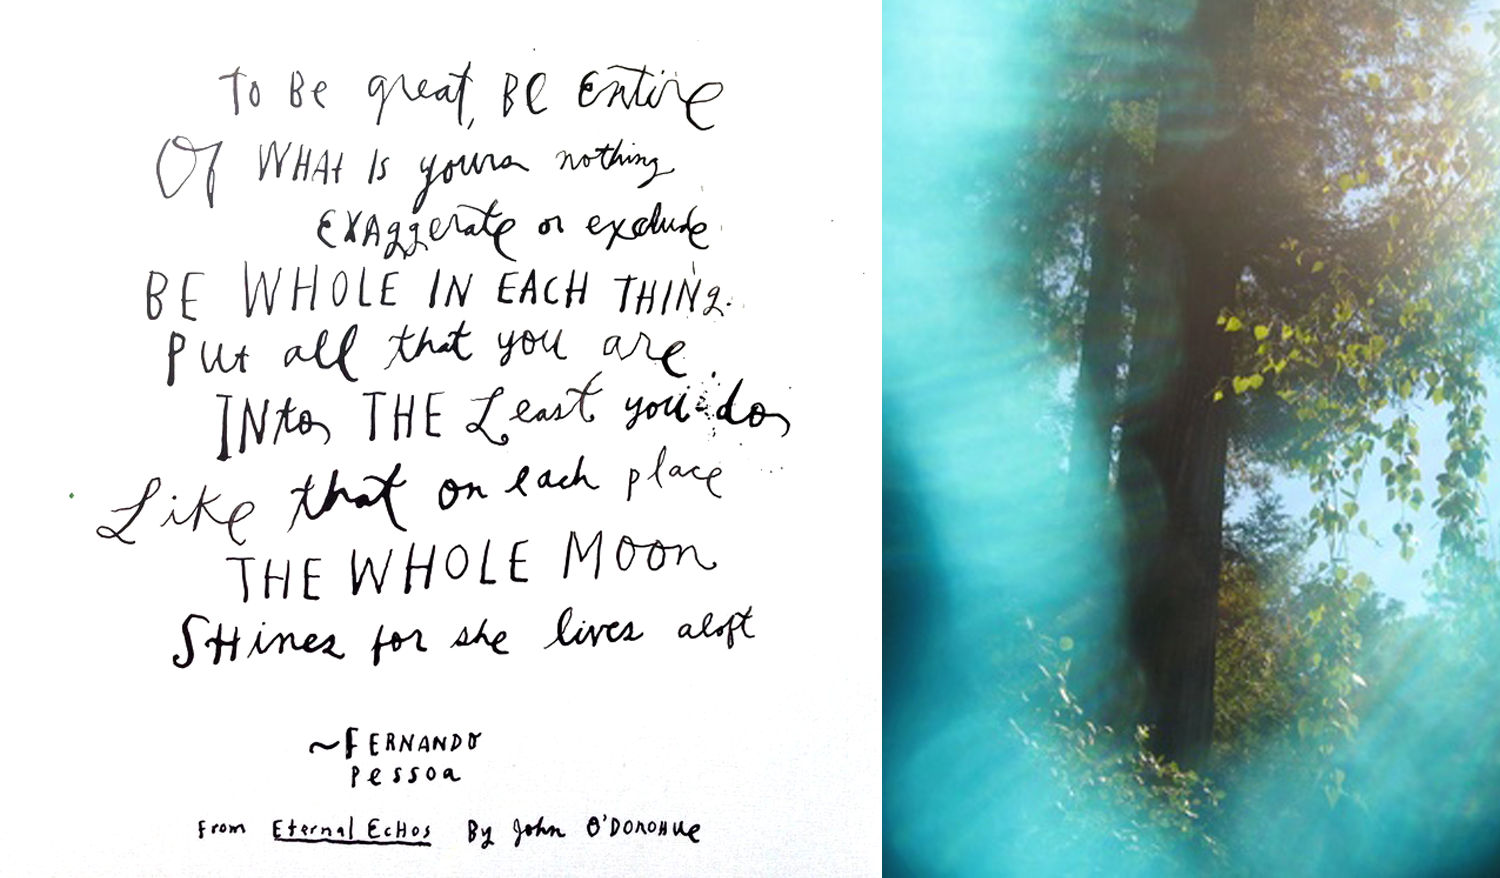 To Be great, Be Entire
Of WHAt Is yours nothing
EXAggerate or exclude
BE WHOLE IN EACH THING.
Put all that you are
INto THE Least you do
Like that on each place
THE WHOLE MOON
SHines for she lives aloft
~FERNANDO
Pessoa
From Eternal EcHos By John O'DONOHUE